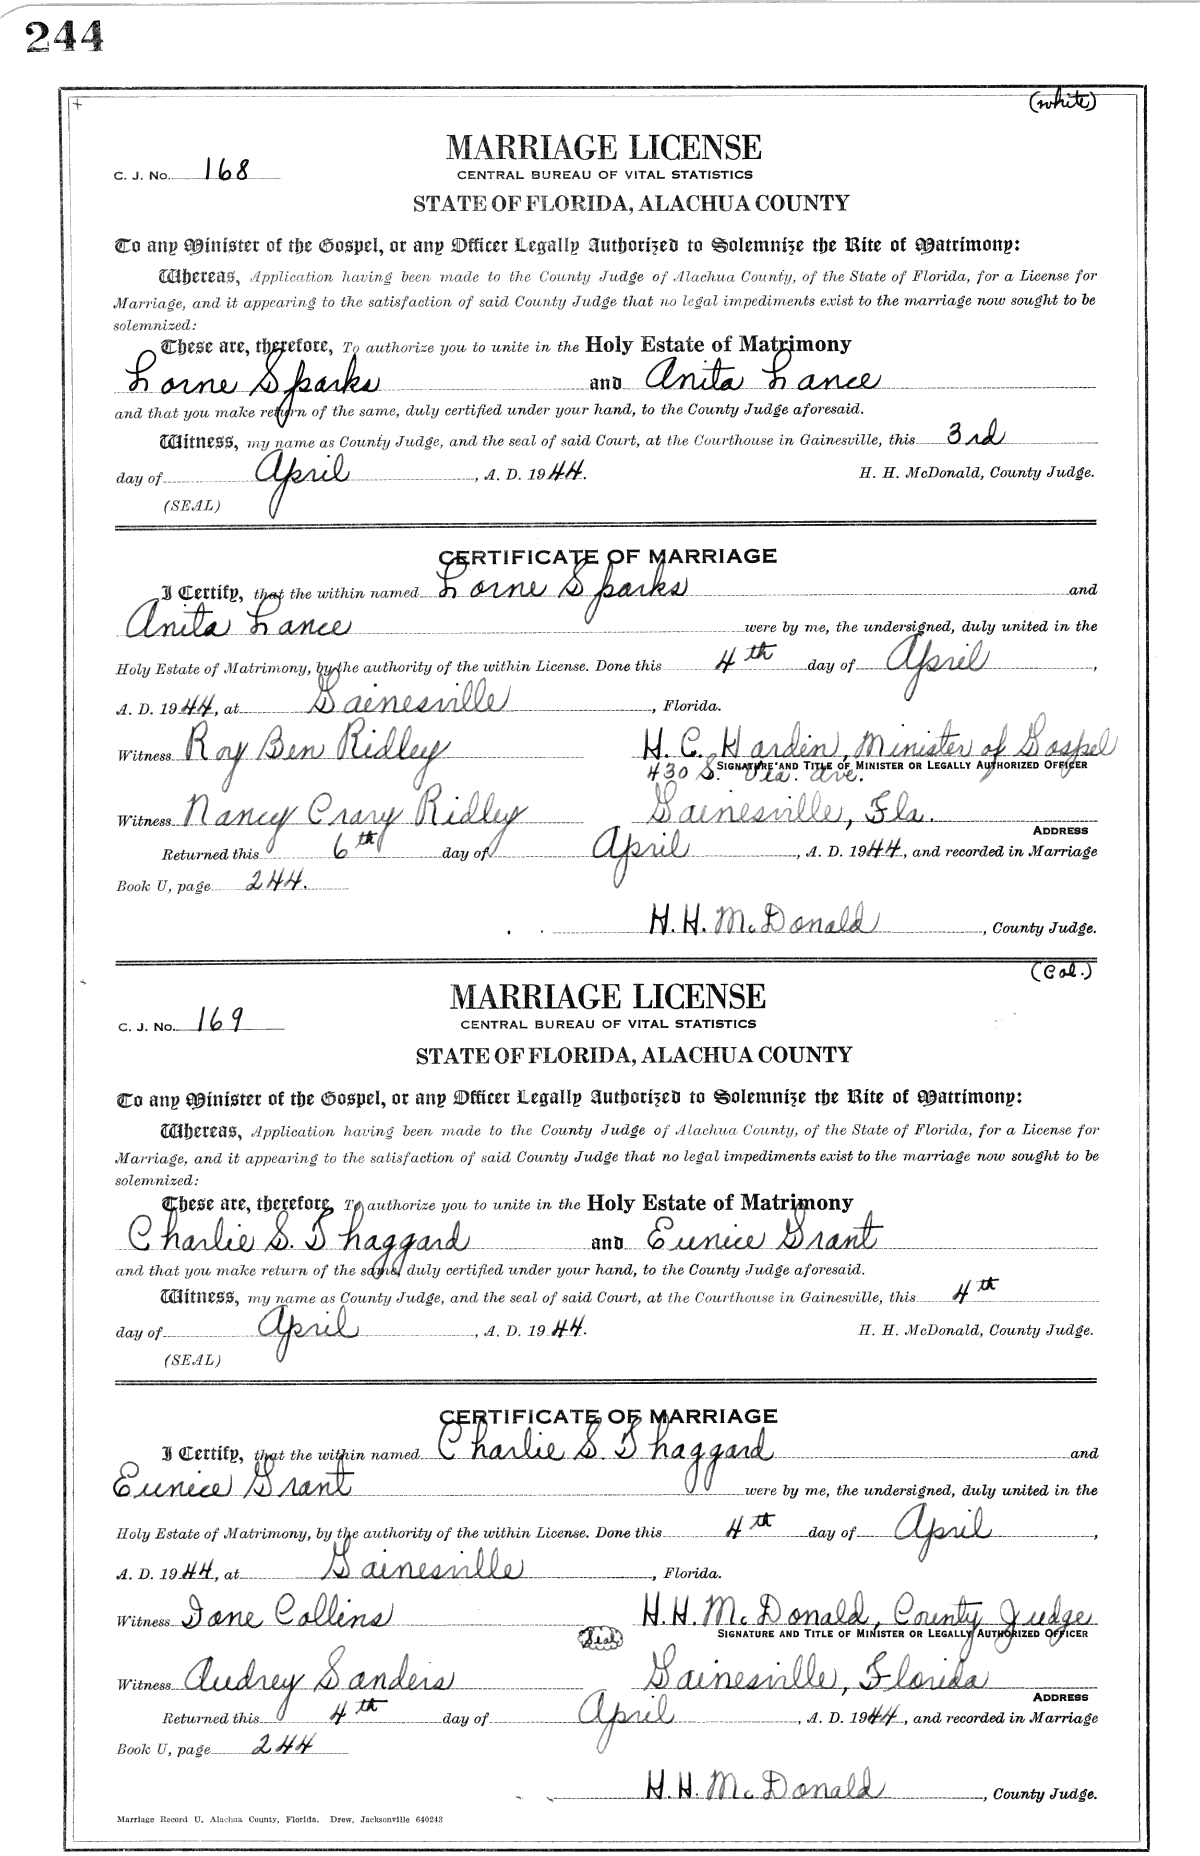 244
(white)
MARRIAGE LICENSE
C. J. No. 168
CENTRAL BUREAU OF VITAL STATISTICS
STATE OF FLORIDA, ALACHUA COUNTY
To any Minister of the Gospel, or any Officer Legally Authorized to Solemnize the Rite of Matrimony:
Whereas, Application having been made to the County Judge of Alachua County, of the State of Florida, for a License for
Marriage, and it appearing to the satisfaction of said County Judge that no legal impediments exist to the marriage now sought to be
solemnized:
These are, therefore, To authorize you to unite in the Holy Estate of Matrimony
Lorne Sparks and Anita Lance
and that you make return of the same, duly certified under your hand, to the County Judge aforesaid.
Witness, my name as County Judge, and the seal of said Court, at the Courthouse in Gainesville, this 3rd
day of April, A. D. 1944. H. H. McDonald, County Judge.
(SEAL)
CERTIFICATE OF MARRIAGE
I Certify, that the within named Lorne Sparks and
Anita Lance were by me, the undersigned, duly united in the
Holy Estate of Matrimony, by the authority of the within License. Done this 4th day of April,
A. D. 1944, at Gainesville, Florida.
Witness Roy Ben Ridley H. C. Hardin, Minister of Gospel
SIGNATURE AND TITLE OF MINISTER OR LEGALLY AUTHORIZED OFFICER
430 S. Va. Ave.
Witness Nancy Crary Ridley Gainesville, Fla.
ADDRESS
Returned this 6th day of April, A. D. 1944, and recorded in Marriage
Book U, page 244.
H. H. McDonald, County Judge.
(Col.)
MARRIAGE LICENSE
C. J. No. 169
CENTRAL BUREAU OF VITAL STATISTICS
STATE OF FLORIDA, ALACHUA COUNTY
To any Minister of the Gospel, or any Officer Legally Authorized to Solemnize the Rite of Matrimony:
Whereas, Application having been made to the County Judge of Alachua County, of the State of Florida, for a License for
Marriage, and it appearing to the satisfaction of said County Judge that no legal impediments exist to the marriage now sought to be
solemnized:
These are, therefore, To authorize you to unite in the Holy Estate of Matrimony
Charlie S. Thaggard and Eunice Grant
and that you make return of the same, duly certified under your hand, to the County Judge aforesaid.
Witness, my name as County Judge, and the seal of said Court, at the Courthouse in Gainesville, this 4th
day of April, A. D. 1944. H. H. McDonald, County Judge.
(SEAL)
CERTIFICATE OF MARRIAGE
I Certify, that the within named Charlie S. Thaggard and
Eunice Grant were by me, the undersigned, duly united in the
Holy Estate of Matrimony, by the authority of the within License. Done this 4th day of April,
A. D. 1944, at Gainesville, Florida.
Witness Ione Collins H. H. McDonald, County Judge
Seal SIGNATURE AND TITLE OF MINISTER OR LEGALLY AUTHORIZED OFFICER
Witness Audrey Sanders Gainesville, Florida
ADDRESS
Returned this 4th day of April, A. D. 1944, and recorded in Marriage
Book U, page 244
H. H. McDonald, County Judge.
Marriage Record U, Alachua County, Florida. Drew, Jacksonville 640243